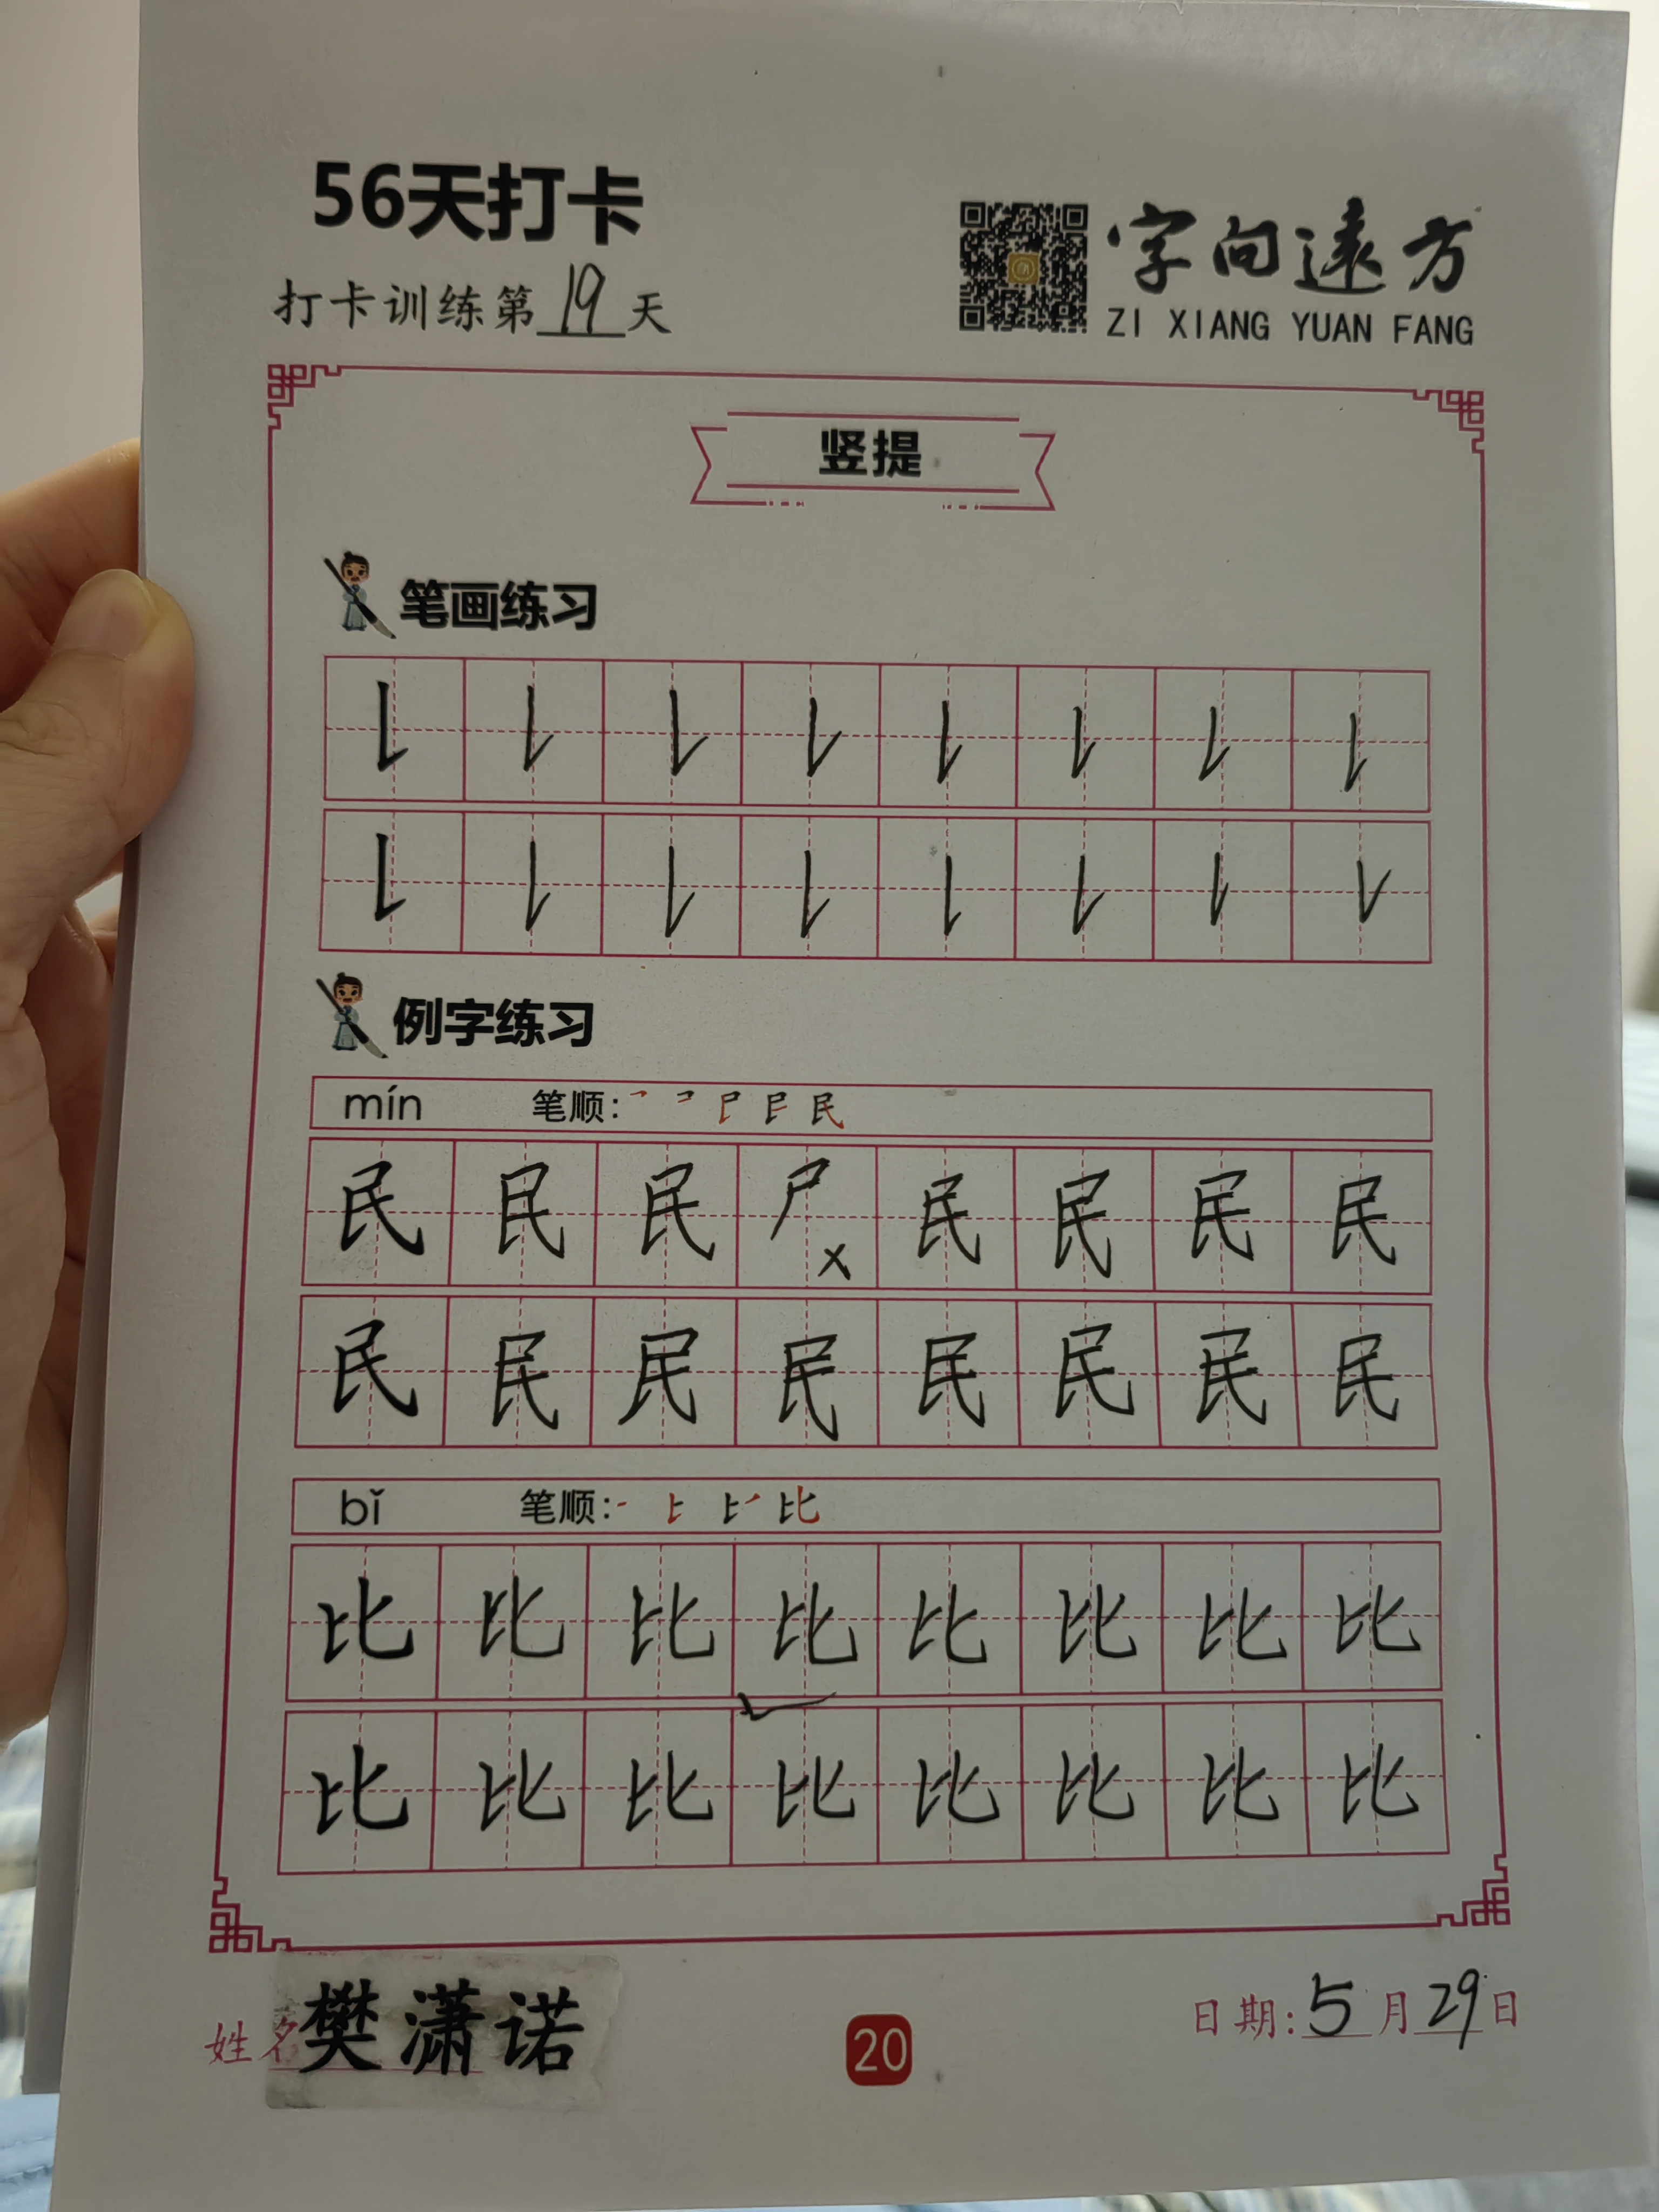 56天打卡
打卡训练第19天
字向遠方
ZI XIANG YUAN FANG
竖提
笔画练习
例字练习
mín 笔顺:
民 民 民 尸 x 民 民 民 民
民 民 民 民 民 民 民 民
bǐ 笔顺:
比 比 比 比 比 比 比 比
比 比 比 比 比 比 比 比
姓名 樊潇诺
20
日期:5月29日